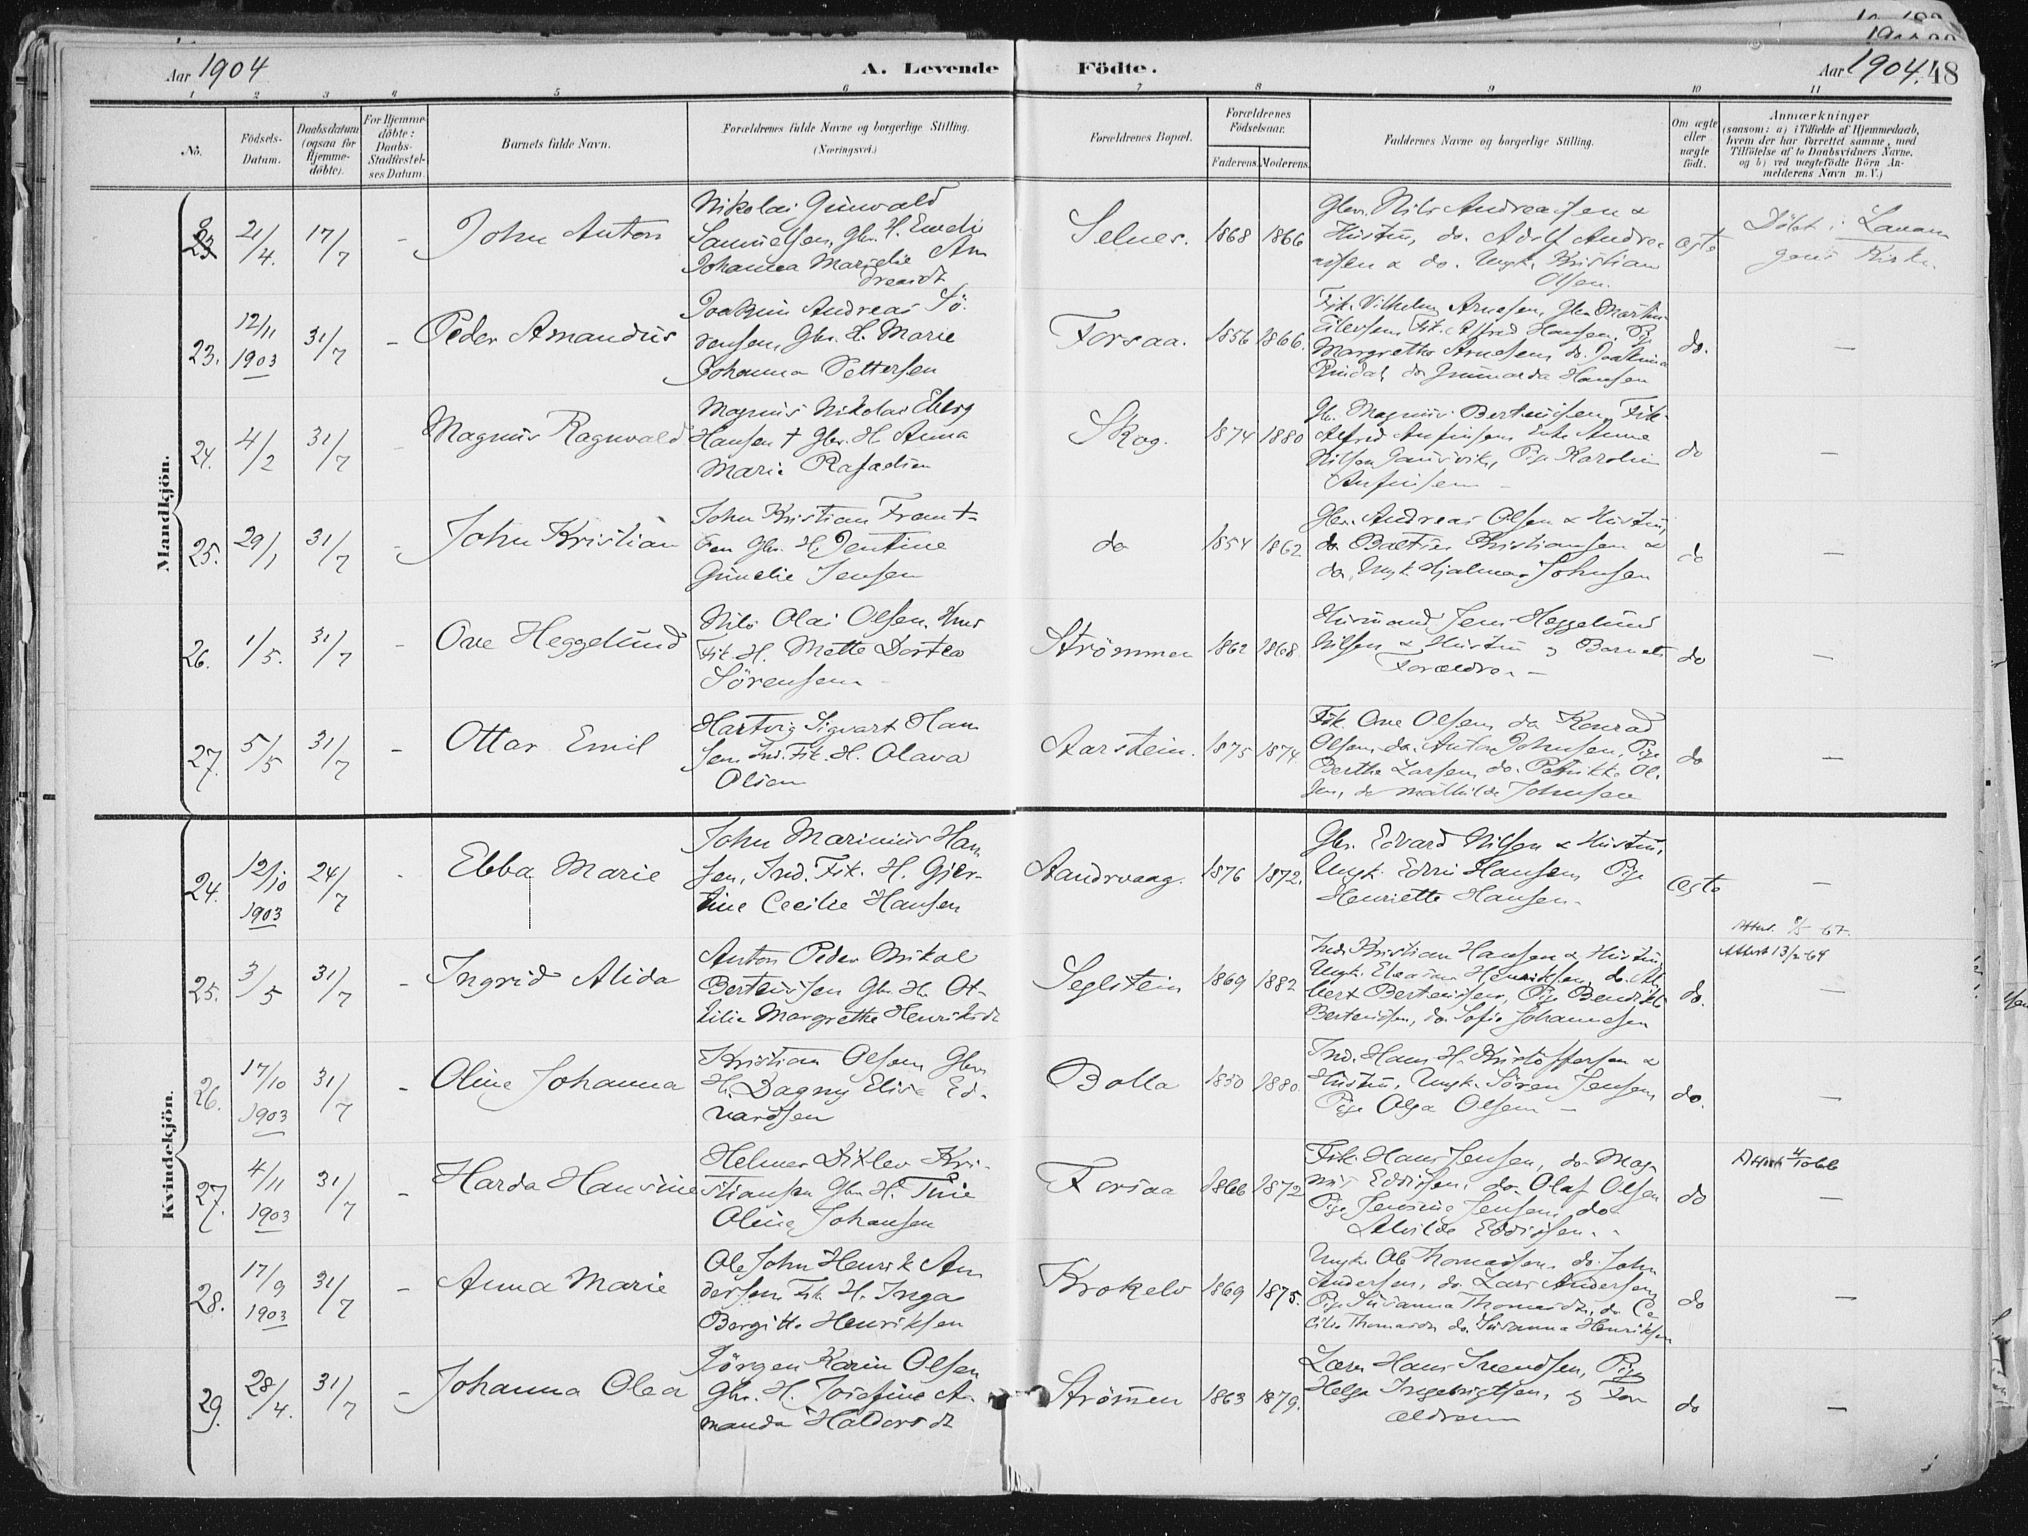 Aar 1904
A. Levende Födte.
Aar 1904. 48
1 2 3 4 5 6 7 8 9 10 11
No.
Födsels-Datum.
Daabsdatum (ogsaa for Hjemmedöbte).
For Hjemmedöbte: Daabs-Stadfæstelses Datum.
Barnets fulde Navn.
Forældrenes fulde Navne og borgerlige Stilling.
(Næringsvei.)
Forældrenes Bopæl.
Forældrenes Födselsaar.
Faderens. Moderens.
Faddernes Navne og borgerlige Stilling.
Om ægte eller uægte födt.
Anmærkninger
(saasom: a) i Tilfælde af Hjemmedaab, hvem der har forrettet samme, med Tilföielse af to Daabsvidners Navne, og b) ved uægtefödte Börn Anmelderens Navn m. V.)
Mandkjön.
21/4. 17/7 - John Anton
Nikolai Gunvald
Samuelsen, Gbr. H. Emelie
Johanna
Selnes. 1868 1866
Gbr. Nils Andreassen &
Hustru, do. Adolf Andre
assen & do. Ungk. Kristian
Olsen.
ægte
Döbt i Lavan
gens Kirke.
23. 12/11 1903 31/7 - Peder Amandus
Joakim Andreas Sö
rensen, Gbr. H. Marie
Johanna Pettersen
Forsaa. 1856 1866.
Fik. Vilhelm Arnesen, Gbr. Martin
Eilersen, Fik. Alfred Hansen, Pige
Margrethe Arnesen, do. Joakima
do. Gunnarda Hansen
do. —
24. 4/2 31/7 - Magnus Ragnvald
Magnus Nikolai Eberg
Hansen + Gbr. H. Anna
Marie
Skog. 1874 1880
Gb. Magnus Berteussen, Fik.
Alfred Anfinsen, Enke Anne
Nilsen Pige Karolin
Anfinsen —
do —
25. 29/1 31/7 - John Kristian
John Kristian Frant-
Gbr. H. Jentine
Gunelie Jensen
do 1854 1862
Gbr. Andreas Olsen & Hustru,
do Kristiansen &
do, Ungk. Hjalmar Johnsen
do —
26. 1/5. 31/7 - Ove Heggelund
Nils Olai Olsen, Hus
Fik. H. Mette Dortea
Sörensen —
Strømmen 1862 1868
Husmand Jens Heggelund
Nilsen & Hustru og Barnets
Forældre. —
do —
27. 5/5 31/7 - Ottar Emil
Hartvig Sigvart Han
sen Ind. Fik. H. Olava
Olsen
Aarstein. 1875 1874.
Fik. Ove Olsen, do Konrad
Olsen, do. Anton Johnsen, Pige
Berthe Larsen, do. Petrikke Ol-
sen, do Mathilde Johnsen
do —
Kvindekjön.
24. 12/10 1903 24/7 - Ebba Marie
John Marinius Han
sen, Ind. Fik. H. Gjer-
tine Cecilie Hansen
Aandrvaag. 1876 1872.
Gbr. Edvard Nilsen & Hustru,
Ungk. Edvin Hansen, Pige
Henriette Hansen.
ægte —
25. 3/5 31/7 - Ingrid Alida
Anton Peder Nikol
Berteussen Gbr. H. Ot-
tilie Margrethe Henriksdt
Seglstein 1869 1882
Ind. Kristian Hansen & Hustru,
Ungk. Henriksen, do. Al
bert Berteussen, Pige Bendikte
Berteussen, do Sofie Johannesen
do.
Attest 8/5 67.
Attest 13/2 64
—
26. 17/10 1903 31/7 - Oline Johanna
Kristian Olsen, Gbr.
H. Dagny Elise Ed-
vardsen
Bolla 1850 1880
Ind. Hans H. Kristoffersen &
Hustru, Ungk. Sören Jensen,
Pige Olga Olsen —
do. —
27. 4/11 1903 31/7 - Harda Hansine
Helmer Ditlev Kri-
stiansen Gbr. H. Tine
Oline Johansen
Forsaa 1866 1872
Fik. Hans Jensen, do. Mag-
nus Eddissen, do. Olaf Olsen
Pige Jensine Jensen, do
Alvilde Eddissen.
do
—
28. 17/9 1903 31/7 - Anna Marie
Ole John Henrik An
dersen Fik. H. Inga
Bergitte Henriksen
Krokelv 1869 1875.
Ungk. Ole Thomassen, do. John
Andersen, do. Lars Andersen,
Pige Susanna Thomasdt, do. Ce
cilie Thomasdt do. Susanna Henriksen
do —
29. 28/4. 31/7 - Johanna Olea
Jörgen Karin Olsen
Gbr. H. Josefine A-
manda Haldorsdt
Strömmen 1863 1879.
Lærer Hans Svendsen, Pige
Helga Ingebrigtsen, og For
ældrene
do —